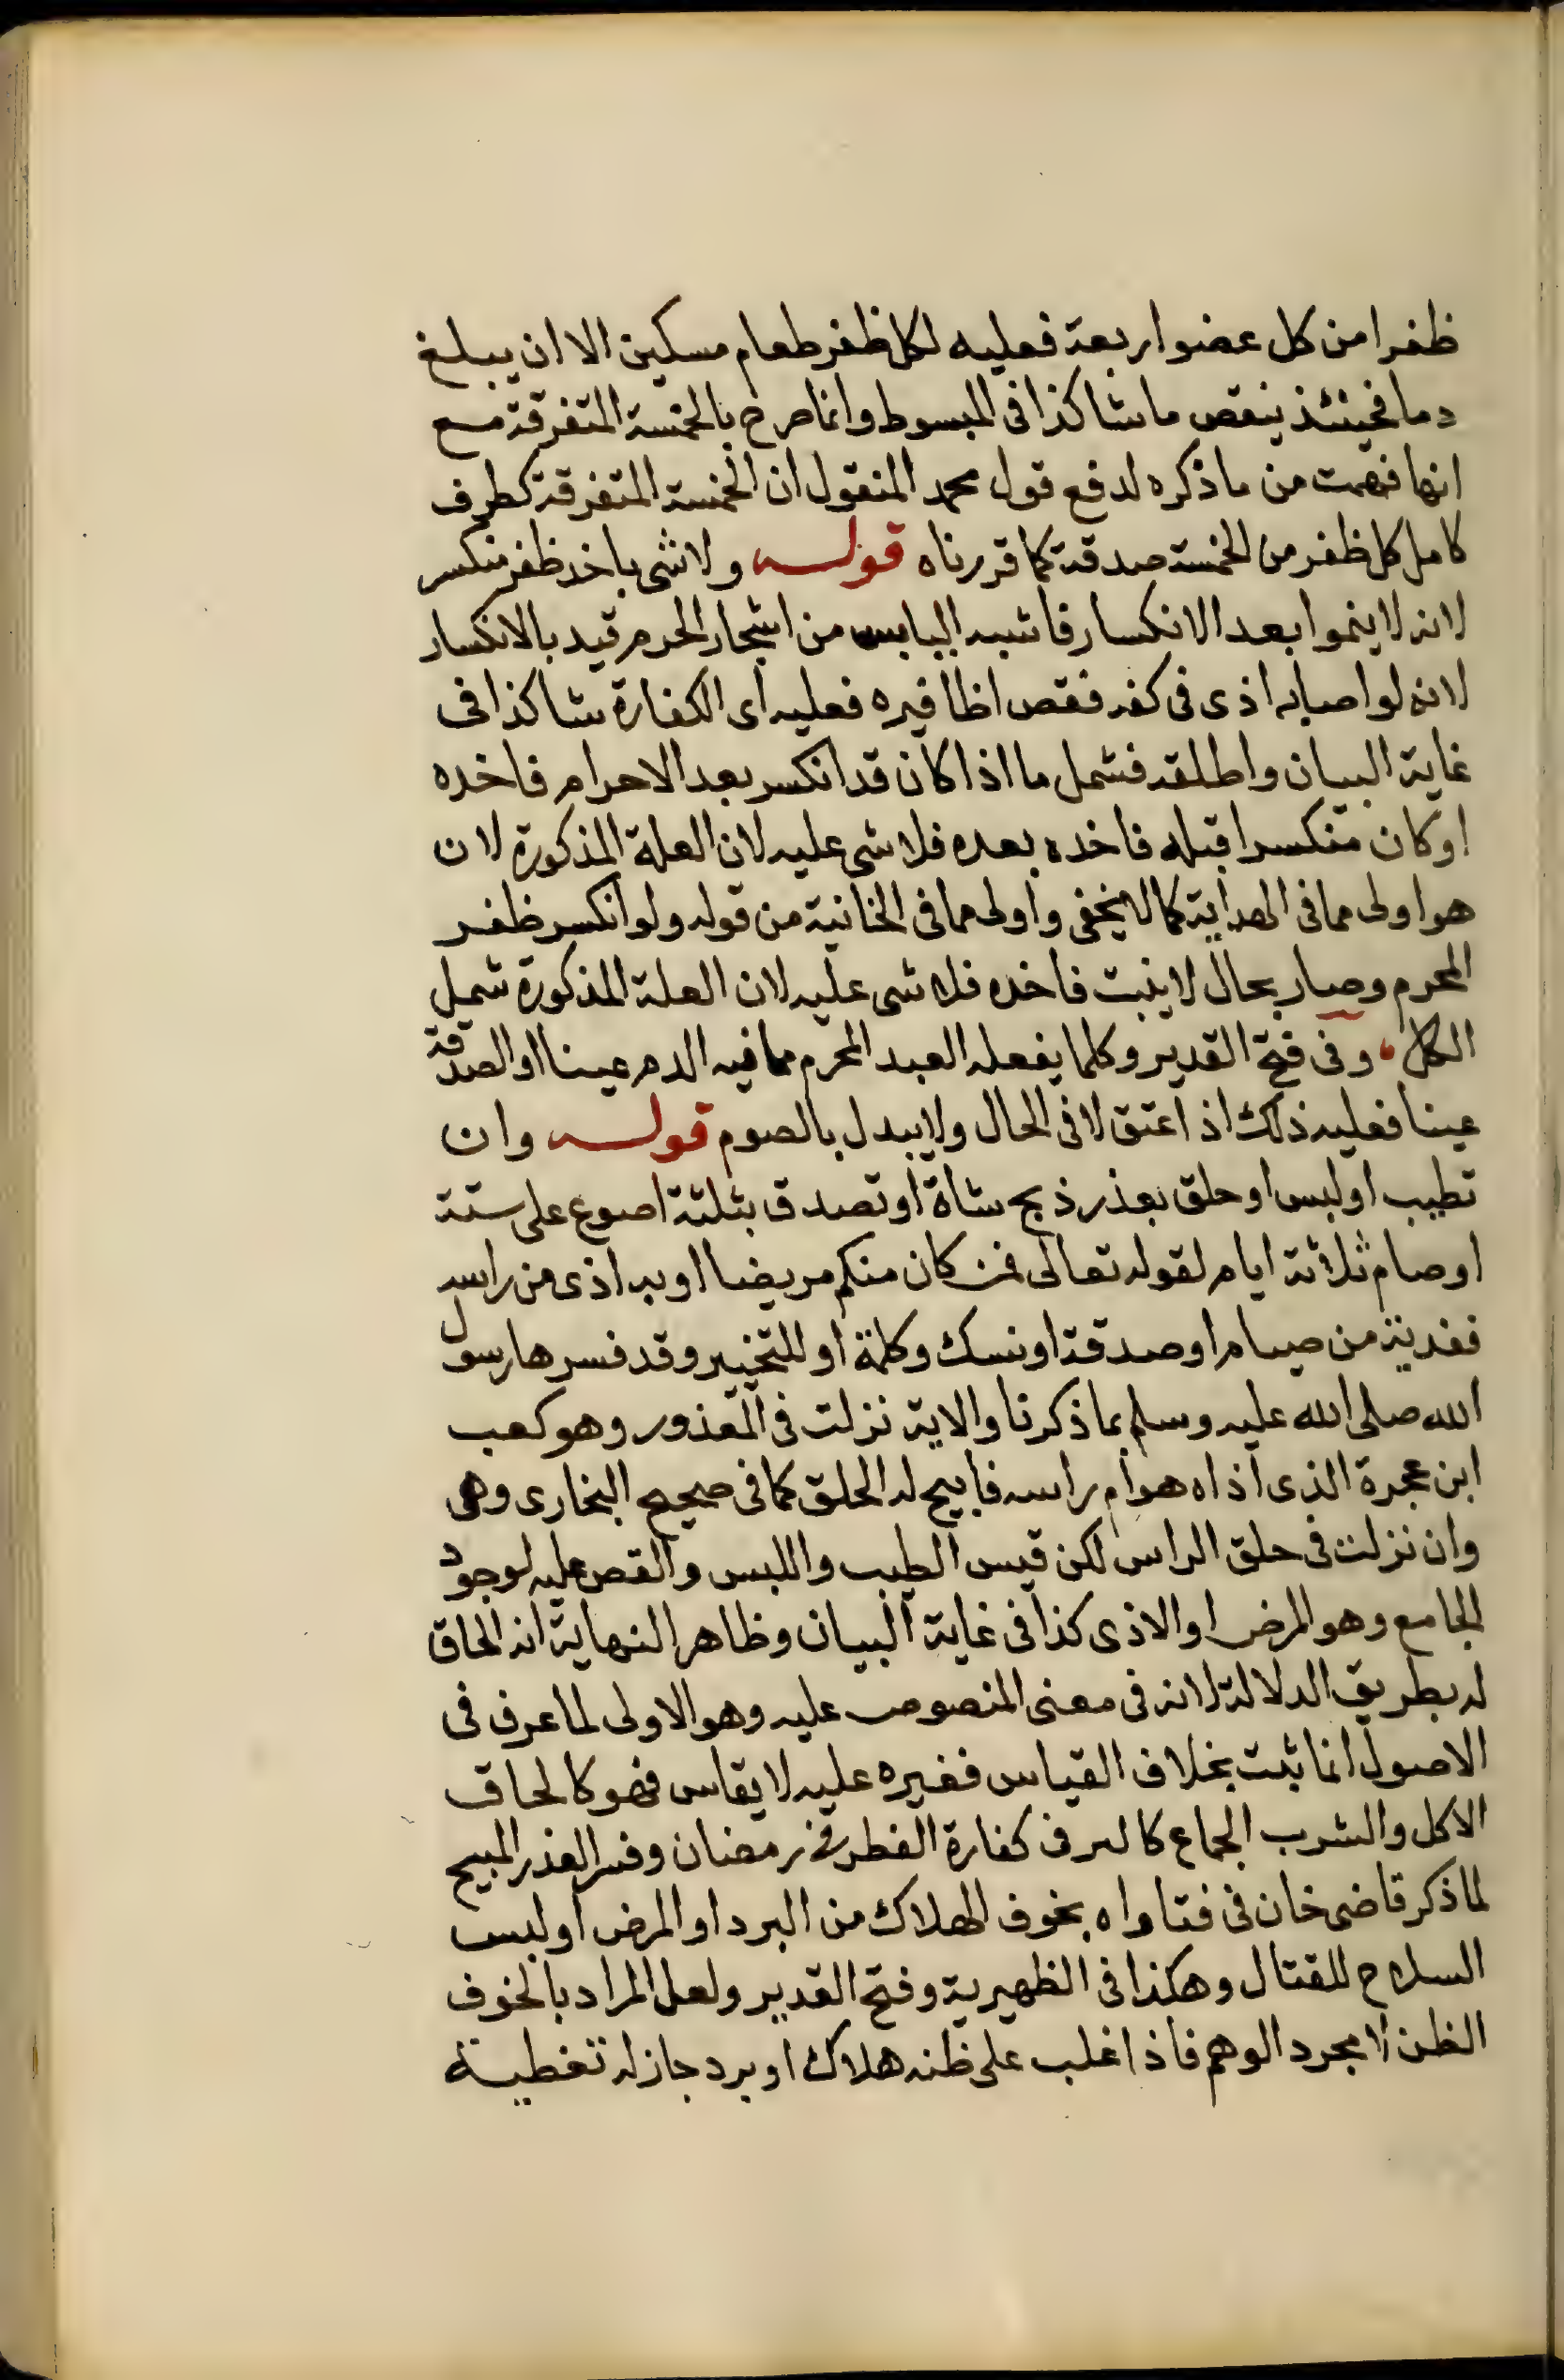 ظفرا من كل عضو اربعة فعليه لكل ظفر طعام مسكين الا ان يبلغ
دما فحينئذ ينقص ما شا كذا فى المبسوط وانما صرح بالخمسة المتفرقة مع
انها فهمت من ما ذكره لدفع قول محمد المنقول ان الخمسة المتفرقة كطرف
كامل كل ظفر من الخمسة صدقة كما قررناه قوله ولا شى باخد ظفر منكسر
لانه لا ينموا بعد الانكسار فاشبه اليابس من اشجار الحرم قيد بالانكسار
لانه لو اصابه اذى فى كفه فقص اظافيره فعليه اى الكفارة شا كذا فى
غاية البيان واطلقه فشمل ما اذا كان قد انكسر بعد الاحرام فاخده
او كان منكسرا قبله فاخده بعده فلا شى عليه لان العلة المذكورة لان
هو اولى مما فى الهداية كما لا يخفى واولى مما فى الخانية من قوله ولو انكسر ظفر
المحرم وصار بحال لا ينبت فاخده فلا شى عليه لان العلة المذكورة شمل
الكل وفى فتح القدير وكلما يفعله العبد المحرم مما فيه الدم عينا او الصدقة
عينا فعليه ذلك اذ اعتق لا فى الحال ولا يبدل بالصوم قوله وان
تطيب او لبس او حلق بعذر ذبح شاة او تصدق بثلثة اصوع على ستة
او صام ثلاثة ايام لقوله تعالى فمن كان منكم مريضا او به اذى من راسه
ففدية من صيام او صدقة او نسك وكلمة او للتخيير وقد فسرها رسول
الله صلى الله عليه وسلم بما ذكرنا والاية نزلت فى المعذور وهو كعب
ابن عجرة الذى اذاه هوام راسه فابيح له الحلق كما فى صحيح البخارى وهى
وان نزلت فى حلق الراس لكن قيس الطيب واللبس والقص عليه لوجود
الجامع وهو المرض او الاذى كذا فى غاية البيان وظاهر النهاية انه الحاق
له بطريق الدلالة لانه فى معنى المنصوص عليه وهو الاولى لما عرف فى
الاصول انما ثبت بخلاف القياس فغيره عليه لا يقاس فهو كالحاق
الاكل والشرب الجماع كفارة الفطر فى رمضان وفسر العذر المبيح
لما ذكر قاضى خان فى فتاواه بخوف الهلاك من البرد او المرض او لبس
السلاح للقتال وهكذا فى الظهيرية وفتح القدير ولعل المراد بالخوف
الظن لا مجرد الوهم فاذا غلب على ظنه هلاك او برد جاز له تغطية